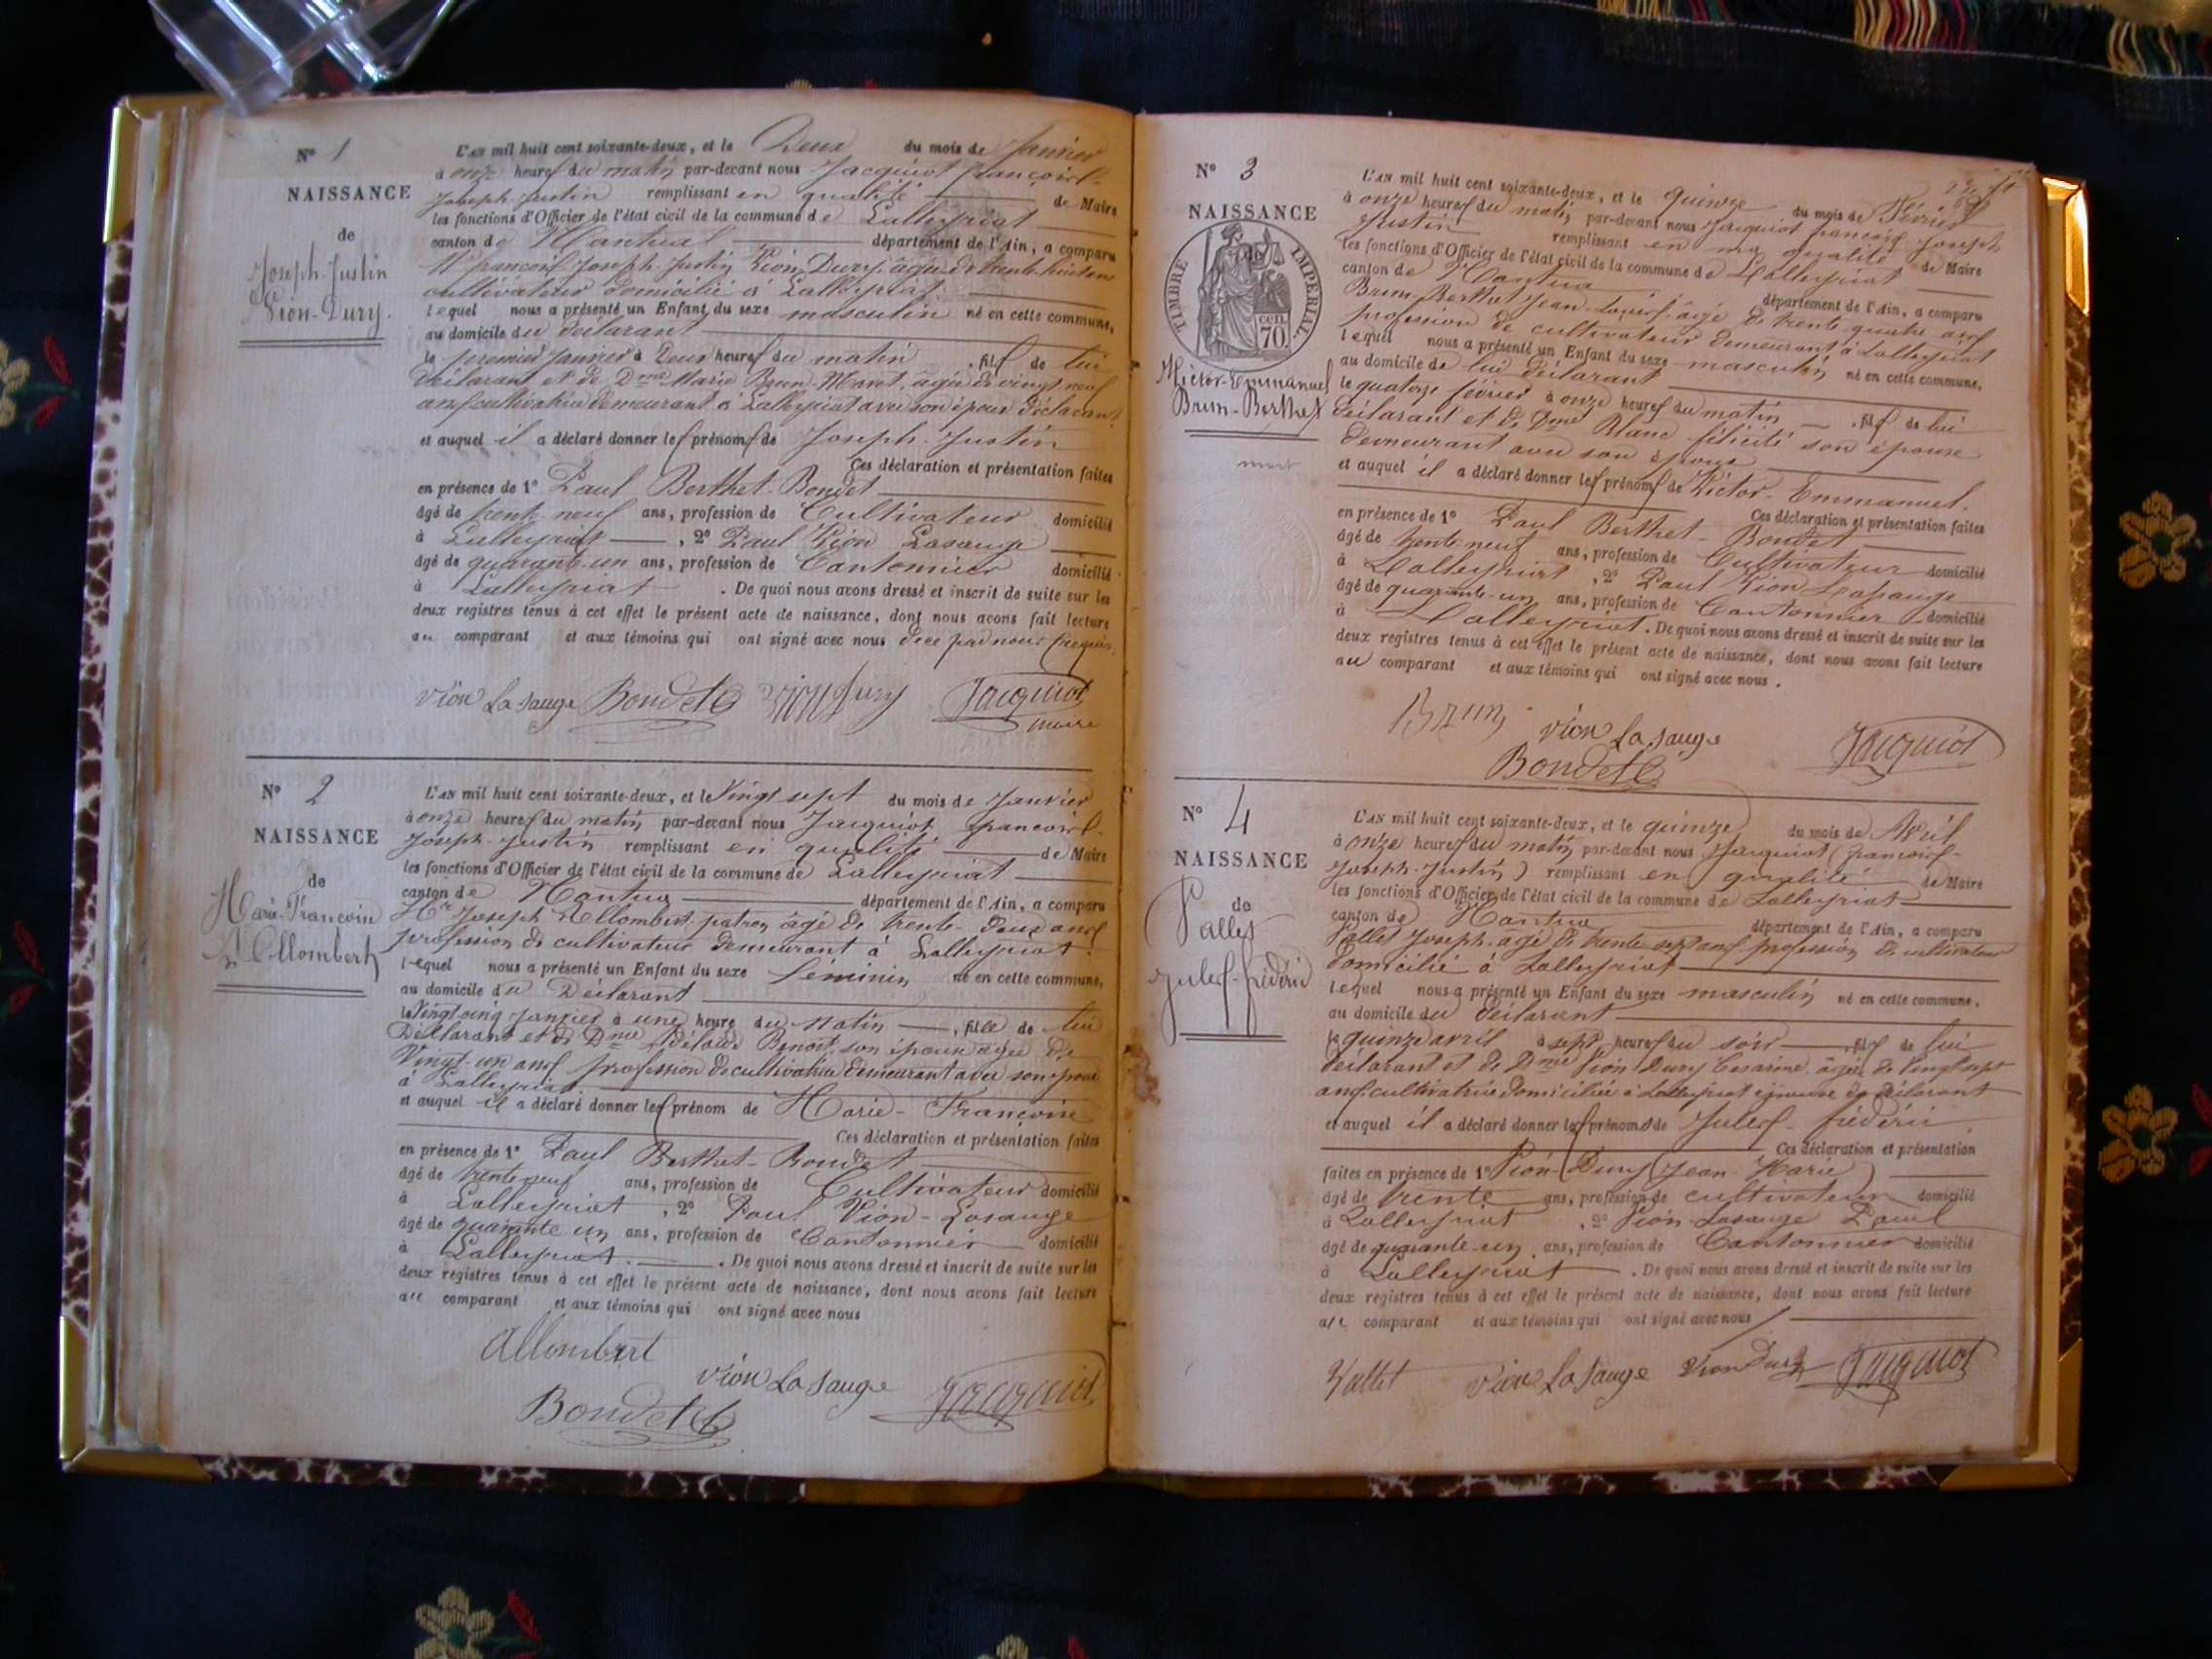 N° 1
NAISSANCE
de
Joseph-Justin
Vion-Dury.
L'AN mil huit cent soixante-deux, et le Deux du mois de Janvier
à onze heures du matin par-devant nous Jacquiot françois-
Joseph-Justin remplissant en qualité de Maire
les fonctions d'Officier de l'état civil de la commune de Lalleyriat
canton de Nantua département de l'Ain, a comparu
françois Joseph Justin Vion Dury âgé de trente huit ans
cultivateur domicilié à Lalleyriat
lequel nous a présenté un Enfant du sexe masculin né en cette commune,
au domicile du déclarant
le premier Janvier à Deux heures du matin, fils de lui
déclarant et de Dme Marie Brun Maret, âgée de vingt neuf
ans cultivatrice demeurant à Lalleyriat avec son époux déclarant
et auquel il a déclaré donner les prénoms de Joseph-Justin
Ces déclaration et présentation faites
en présence de 1° Paul Berthet-Bondet
âgé de trente-neuf ans, profession de Cultivateur domicilié
à Lalleyriat, 2° Paul Vion Lasauge
âgé de quarante-un ans, profession de Cantonnier domicilié
à Lalleyriat. De quoi nous avons dressé et inscrit de suite sur les
deux registres tenus à cet effet le présent acte de naissance, dont nous avons fait lecture
au comparant et aux témoins qui ont signé avec nous de ce par nous requis.
vion La Sauge Bondet B vion Dury Jacquiot
maire
N° 2
NAISSANCE
de
Marie-Françoise
Allombert
L'AN mil huit cent soixante-deux, et le Vingt sept du mois de Janvier
à onze heures du matin par-devant nous Jacquiot françois-
Joseph-Justin remplissant en qualité de Maire
les fonctions d'Officier de l'état civil de la commune de Lalleyriat
canton de Nantua département de l'Ain, a comparu
Joseph Allombert-patron âgé de trente-Deux ans
profession de cultivateur demeurant à Lalleyriat
lequel nous a présenté un Enfant du sexe féminin né en cette commune,
au domicile du Déclarant
le Vingt cinq Janvier à une heure du Matin, fille de lui
Déclarant et de Dme Adélaïde Benoit, son épouse âgée de
Vingt-un ans profession de cultivatrice demeurant avec son époux
à Lalleyriat
et auquel il a déclaré donner les prénom de Marie-Françoise
Ces déclaration et présentation faites
en présence de 1° Paul Berthet-Bondet
âgé de trente neuf ans, profession de Cultivateur domicilié
à Lalleyriat, 2° Paul Vion-Lasauge
âgé de quarante un ans, profession de Cantonnier domicilié
à Lalleyriat. De quoi nous avons dressé et inscrit de suite sur les
deux registres tenus à cet effet le présent acte de naissance, dont nous avons fait lecture
au comparant et aux témoins qui ont signé avec nous
Allombert
vion La Sauge Jacquiot
Bondet B
N° 3
NAISSANCE
de
TIMBRE IMPERIAL.
70 cen.
Victor-Emmanuel
Brun-Berthet
mort
L'AN mil huit cent soixante-deux, et le quinze du mois de Février
à onze heures du matin par-devant nous Jacquiot françois Joseph
Justin remplissant en ma qualité de Maire
les fonctions d'Officier de l'état civil de la commune de Lalleyriat
canton de Nantua département de l'Ain, a comparu
Brun-Berthet Jean-Louis âgé de trente quatre ans
profession de cultivateur demeurant à Lalleyriat
lequel nous a présenté un Enfant du sexe masculin né en cette commune,
au domicile de lui déclarant
le quatorze février à onze heures du matin, fils de lui
déclarant et de Dme Blanc félicité son épouse
demeurant avec son époux
et auquel il a déclaré donner les prénoms de Victor-Emmanuel.
Ces déclaration et présentation faites
en présence de 1° Paul Berthet-Bondet
âgé de trente neuf ans, profession de Cultivateur domicilié
à Lalleyriat, 2° Paul Vion Lasauge
âgé de quarante-un ans, profession de Cantonnier domicilié
à Lalleyriat. De quoi nous avons dressé et inscrit de suite sur les
deux registres tenus à cet effet le présent acte de naissance, dont nous avons fait lecture
au comparant et aux témoins qui ont signé avec nous.
Brun vion La Sauge Jacquiot
Bondet B
N° 4
NAISSANCE
de
Vallet
Jules-frédéric
L'AN mil huit cent soixante-deux, et le quinze du mois de Avril
à onze heures du matin par-devant nous Jacquiot (françois-
Joseph-Justin) remplissant en qualité de Maire
les fonctions d'Officier de l'état civil de la commune de Lalleyriat
canton de Nantua département de l'Ain, a comparu
Vallet Joseph, âgé de trente sept ans profession de cultivateur
domicilié à Lalleyriat
lequel nous a présenté un Enfant du sexe masculin né en cette commune,
au domicile du déclarant
le quinze avril à sept heures du soir, fils de lui
déclarant et de Dme Vion-Dury Cesarine âgée de Vingt sept
ans cultivatrice domiciliée à Lalleyriat épouse du déclarant
et auquel il a déclaré donner les prénoms de Jules-frédéric
Ces déclaration et présentation
faites en présence de 1° Vion-Dury (Jean-Marie)
âgé de trente ans, profession de cultivateur domicilié
à Lalleyriat, 2° Vion-Lasauge Paul
âgé de quarante-un ans, profession de Cantonnier domicilié
à Lalleyriat. De quoi nous avons dressé et inscrit de suite sur les
deux registres tenus à cet effet le présent acte de naissance, dont nous avons fait lecture
au comparant et aux témoins qui ont signé avec nous
Vallet vion La Sauge Vion Dury Jacquiot